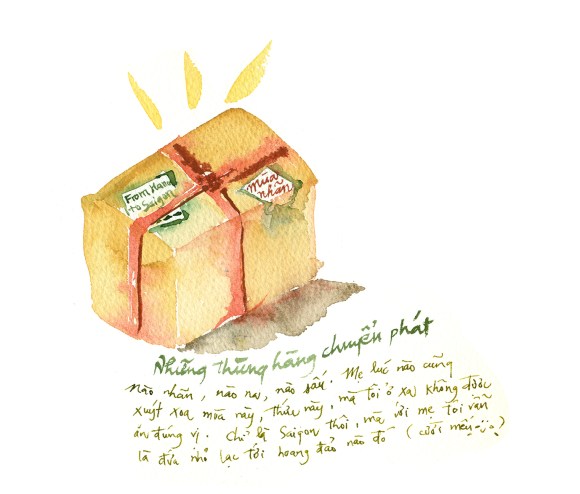 From Hanoi
to Saigon
mùa
nhãn
Những thùng hàng chuyển phát
Nào nhãn, nào na, nào sấu. Mẹ lúc nào cũng
xuýt xoa mùa này, thức này, mà tôi ở xa không được
ăn đúng vị. Chỉ là Saigon thôi, mà với mẹ tôi vẫn
là đứa nhỏ lạc tới hoang đảo nào đó (cười mếu